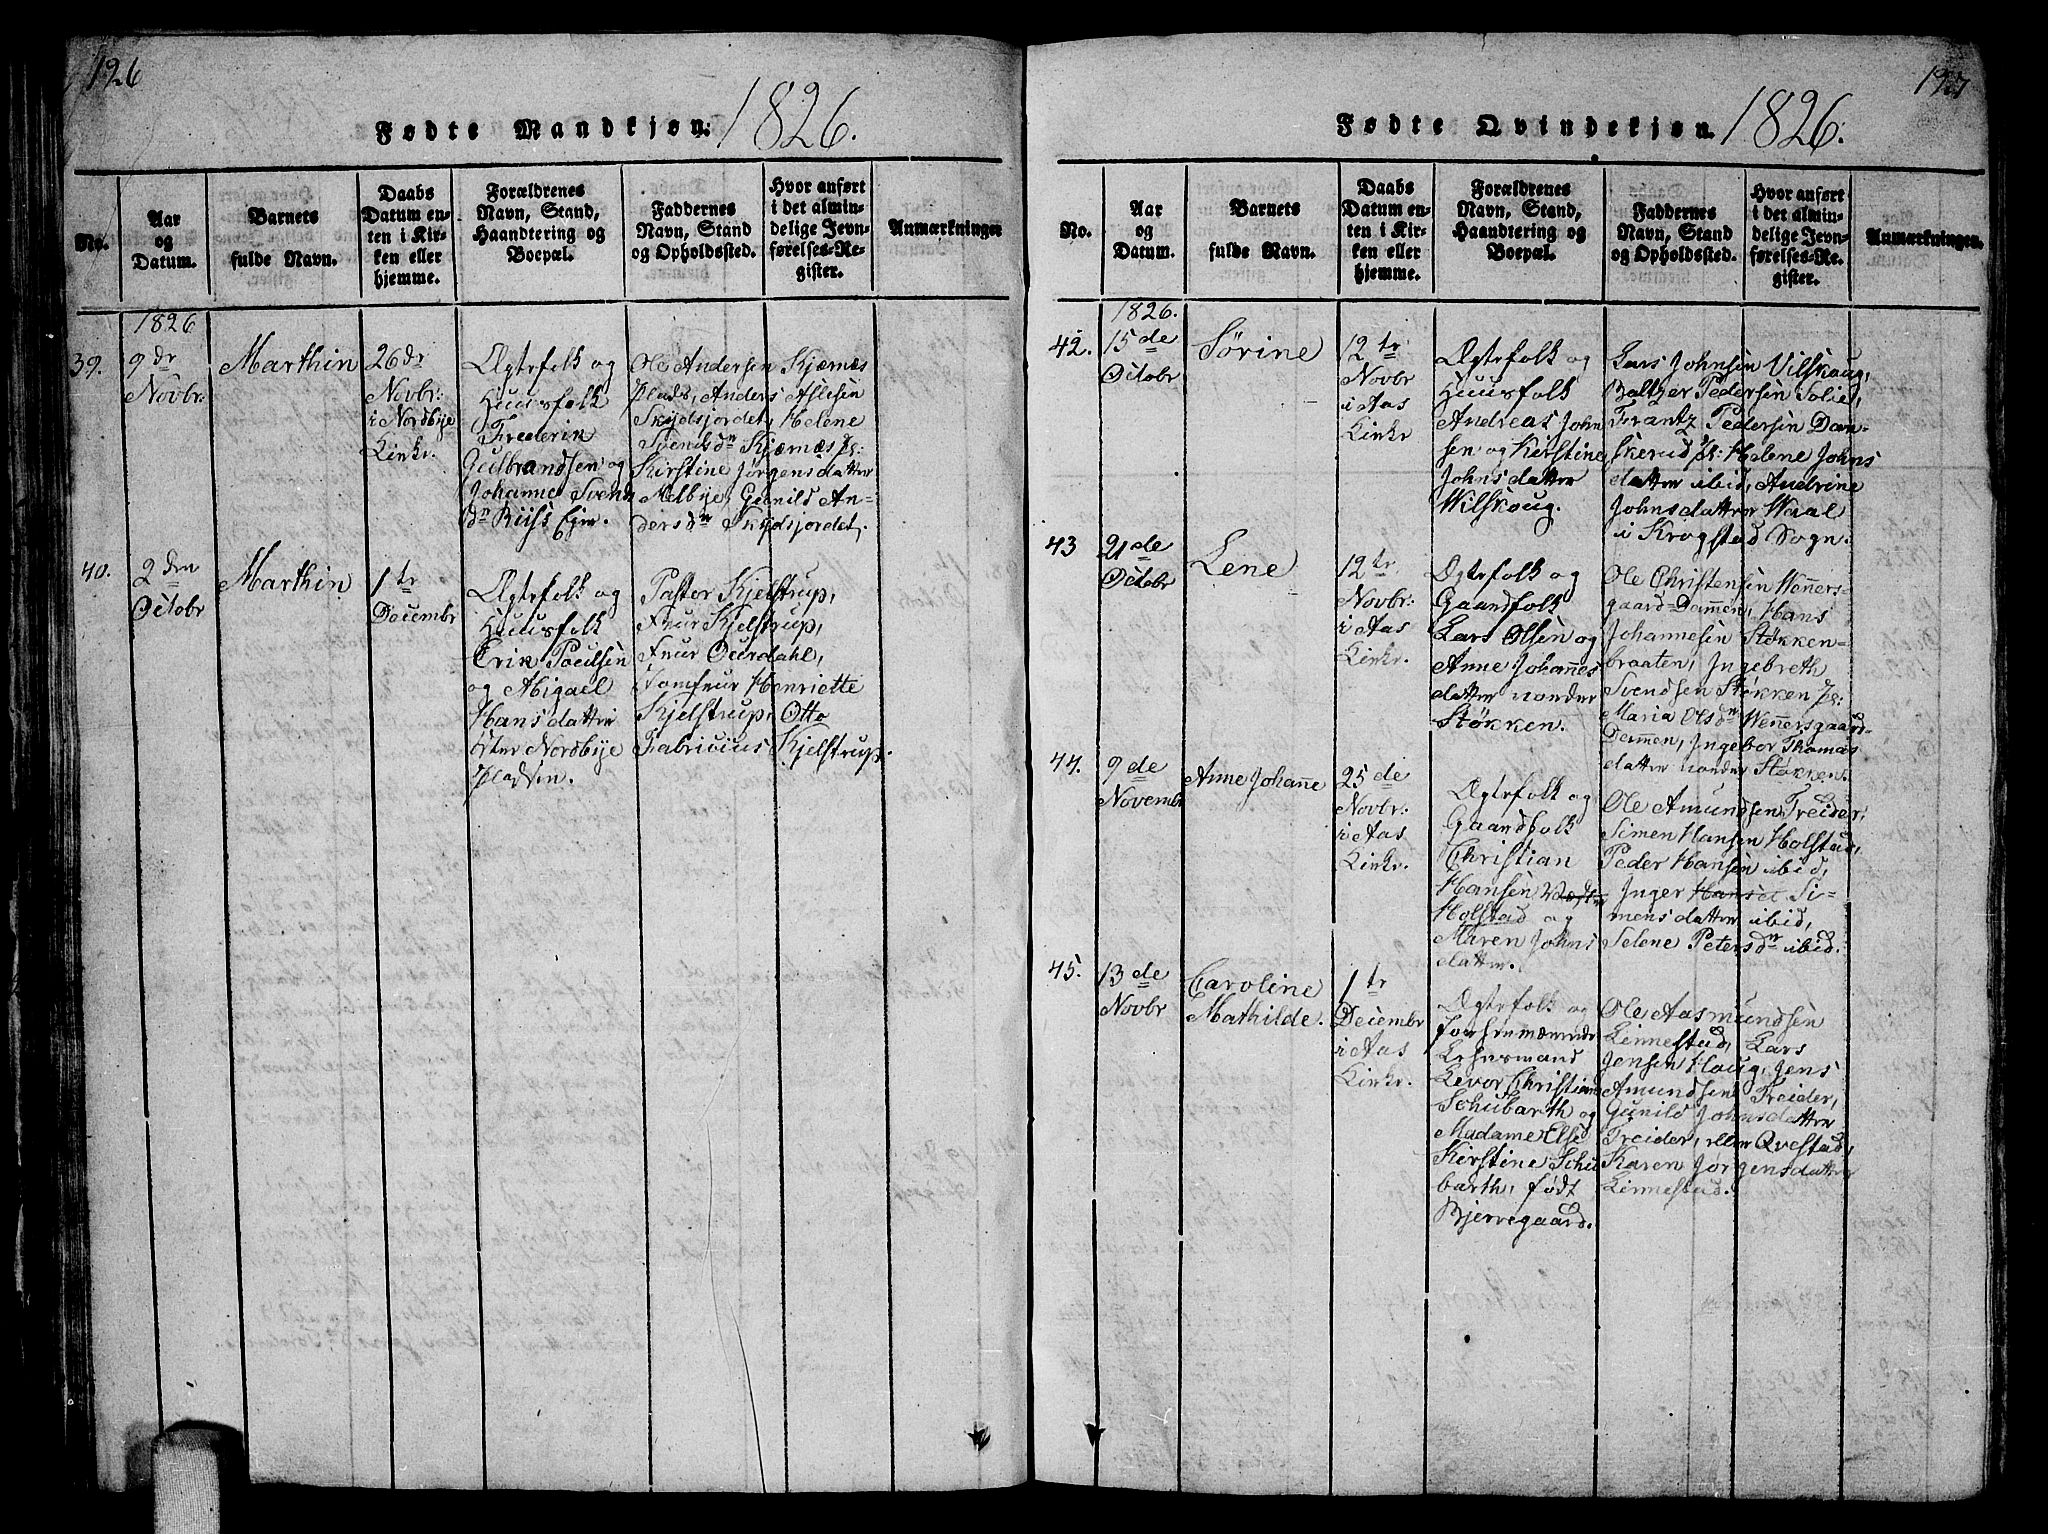 126
Fødte Mandkjøn: 1826.
No.
Aar
og
Datum.
Barnets
fulde Navn.
Daabs
Datum en-
ten i Kir-
ken eller
hjemme.
Forældrenes
Navn, Stand,
Haandtering og
Boepæl.
Faddernes
Navn, Stand
og Opholdssted.
Hvor anført
i det almin-
delige Jevn-
førelses-Re-
gister.
Anmærkninger
1826
39.
9 dr
Novbr:
Marthin
26 dr
Novbr:
i Nordbye
Kirkr.
Ægtefolk og
Huusfolk
Frederik
Gulbrandsen og
Johanne Svens
dr Riis Ejer.
Ole Andersen Kjærnæs
Plads, Anders Aslesen
Skydsjordet, Helene
Svensdr Kjærnæs Pl:
Kirstine Jørgensdatter
Melbye, Gunild An-
dersdr Skydsjordet.
40.
2 den
Octobr
Marthin
1 tr
Decembr
Ægtefolk og
Huusfolk
Erik Poulsen
og Abigael
Hansdatter
øster Nordbye
Pladsen.
Pastor Kjelstrup,
Frue Kjelstrup,
Frue Ourdahl,
Jomfrue Henriette
Kjelstrup, Otto
Fabricius Kjelstrup.
197
Fødte Qvindekjøn. 1826:
No.
Aar
og
Datum.
Barnets
fulde Navn.
Daabs
Datum en-
ten i Kir-
ken eller
hjemme.
Forældrenes
Navn, Stand,
Haandtering og
Boepæl.
Faddernes
Navn, Stand
og Opholdssted.
Hvor anført
i det almin-
delige Jevn-
førelses-Re-
gister.
Anmærkninger.
1826.
42.
15 de
Octobr
Sørine
12 tr
Novbr
i Aas
Kirkr
Ægtefolk og
Huusfolk
Andreas John
sen og Kirstine
Johnsdatter
Wilskoug.
Lars Johnsen Vilskoug,
Baltzer Pedersen Solie,
Frantz Pedersen Dan-
skerud pl: Helene Johns
datter ibid, Andrine
Johnsdatter Waal
i Krogstad Sogn.
43
21 de
Octobr
Lene
12 tr
Novbr:
i Aas
Kirkr.
Ægtefolk og
Gaardfolk
Lars Olsen og
Anne Johannes
datter nordre
Støkken.
Ole Christensen Wenners-
gaard-Dammen, Hans
Johannesen Støkken-
braaten, Ingebreth
Svendsen Støkken Pl:
Maria Olsdr Wennersgaard-
Dammen, Ingebor Thomas
datter nordre Støkken.
44.
9 de
Novembr
Anne Johanne
25 de
Novbr:
i Aas
Kirkr.
Ægtefolk og
Gaardfolk
Christian
Hansen Vestre
Holstad og
Maren Johns
datter.
Ole Amundsen Treider,
Simen Hansen Holstad,
Peder Hansen ibid,
Inger Hansd Si-
mensdatter ibid,
Selene Petersdr ibid.
45.
13 de
Novbr
Caroline
Mathilde.
1 tr
Decembr
i Aas
Kirkr.
Ægtefolk og
Lehnsmand
Levor Christian
Schubarth og
Madame Else
Kirstine Schu
barth, født
Bjerregaard.
Ole Aasmundsen
Linnestad, Lars
Jensen Haug, Jens
Amundsen Treider,
Gunild Johnsdatter
Treider, eller Qvestad,
Karen Jørgensdatter
Linnestad.